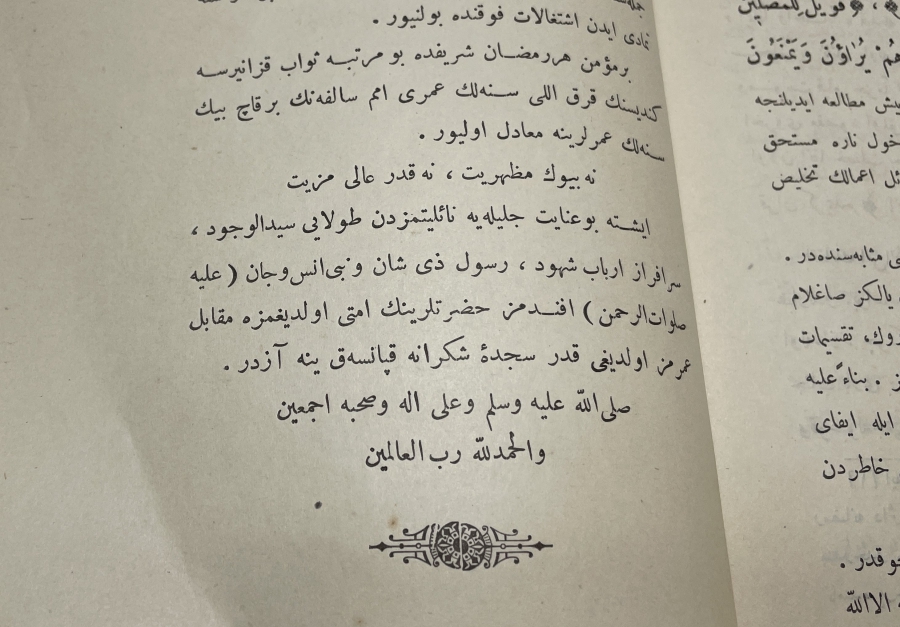 تمادى ايدن اشتغالات فوقنده بولنيور .
برمؤمن هررمضان شريفده بو مرتبه ثواب قزانيرسه
كنديسنك قرق اللى سنه‌لك عمرى امم سالفه‌نك برقاچ بيك
سنه‌لك عمرلرينه معادل اوليور .
نه بيوك مظهريت ، نه قدر عالى مزيت
ايشته بوعنايت جليله‌يه نائليتمزدن طولايى سيدالوجود ،
سرافراز ارباب شهود ، رسول ذى شان ونبىّ انس وجان ( عليه
صلوات‌الرحمن ) افندمز حضرتلرينك امتى اولديغمزه مقابل
عمرمز اولديغى قدر سجدۀ شكرانه قپانسه‌ق ينه آزدر .
صلى‌الله عليه وسلم وعلى اله وصحبه اجمعين
والحمدلله رب العالمين
فويل للمصلين
هُمْ يُرَاؤُنَ وَيَمْنَعُونَ
مطالعه ايديلنجه
ناره مستحق
اعمالك تخليص
مثابه‌سنده‌در .
يالكز صاغلام
تقسيمات
. بناءً عليه
ايله ايفاى
خاطردن
الاالله